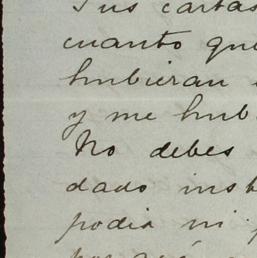 Tus cartas
cuanto que
hubieran
y me hub
No debes
dado inst
podia ni